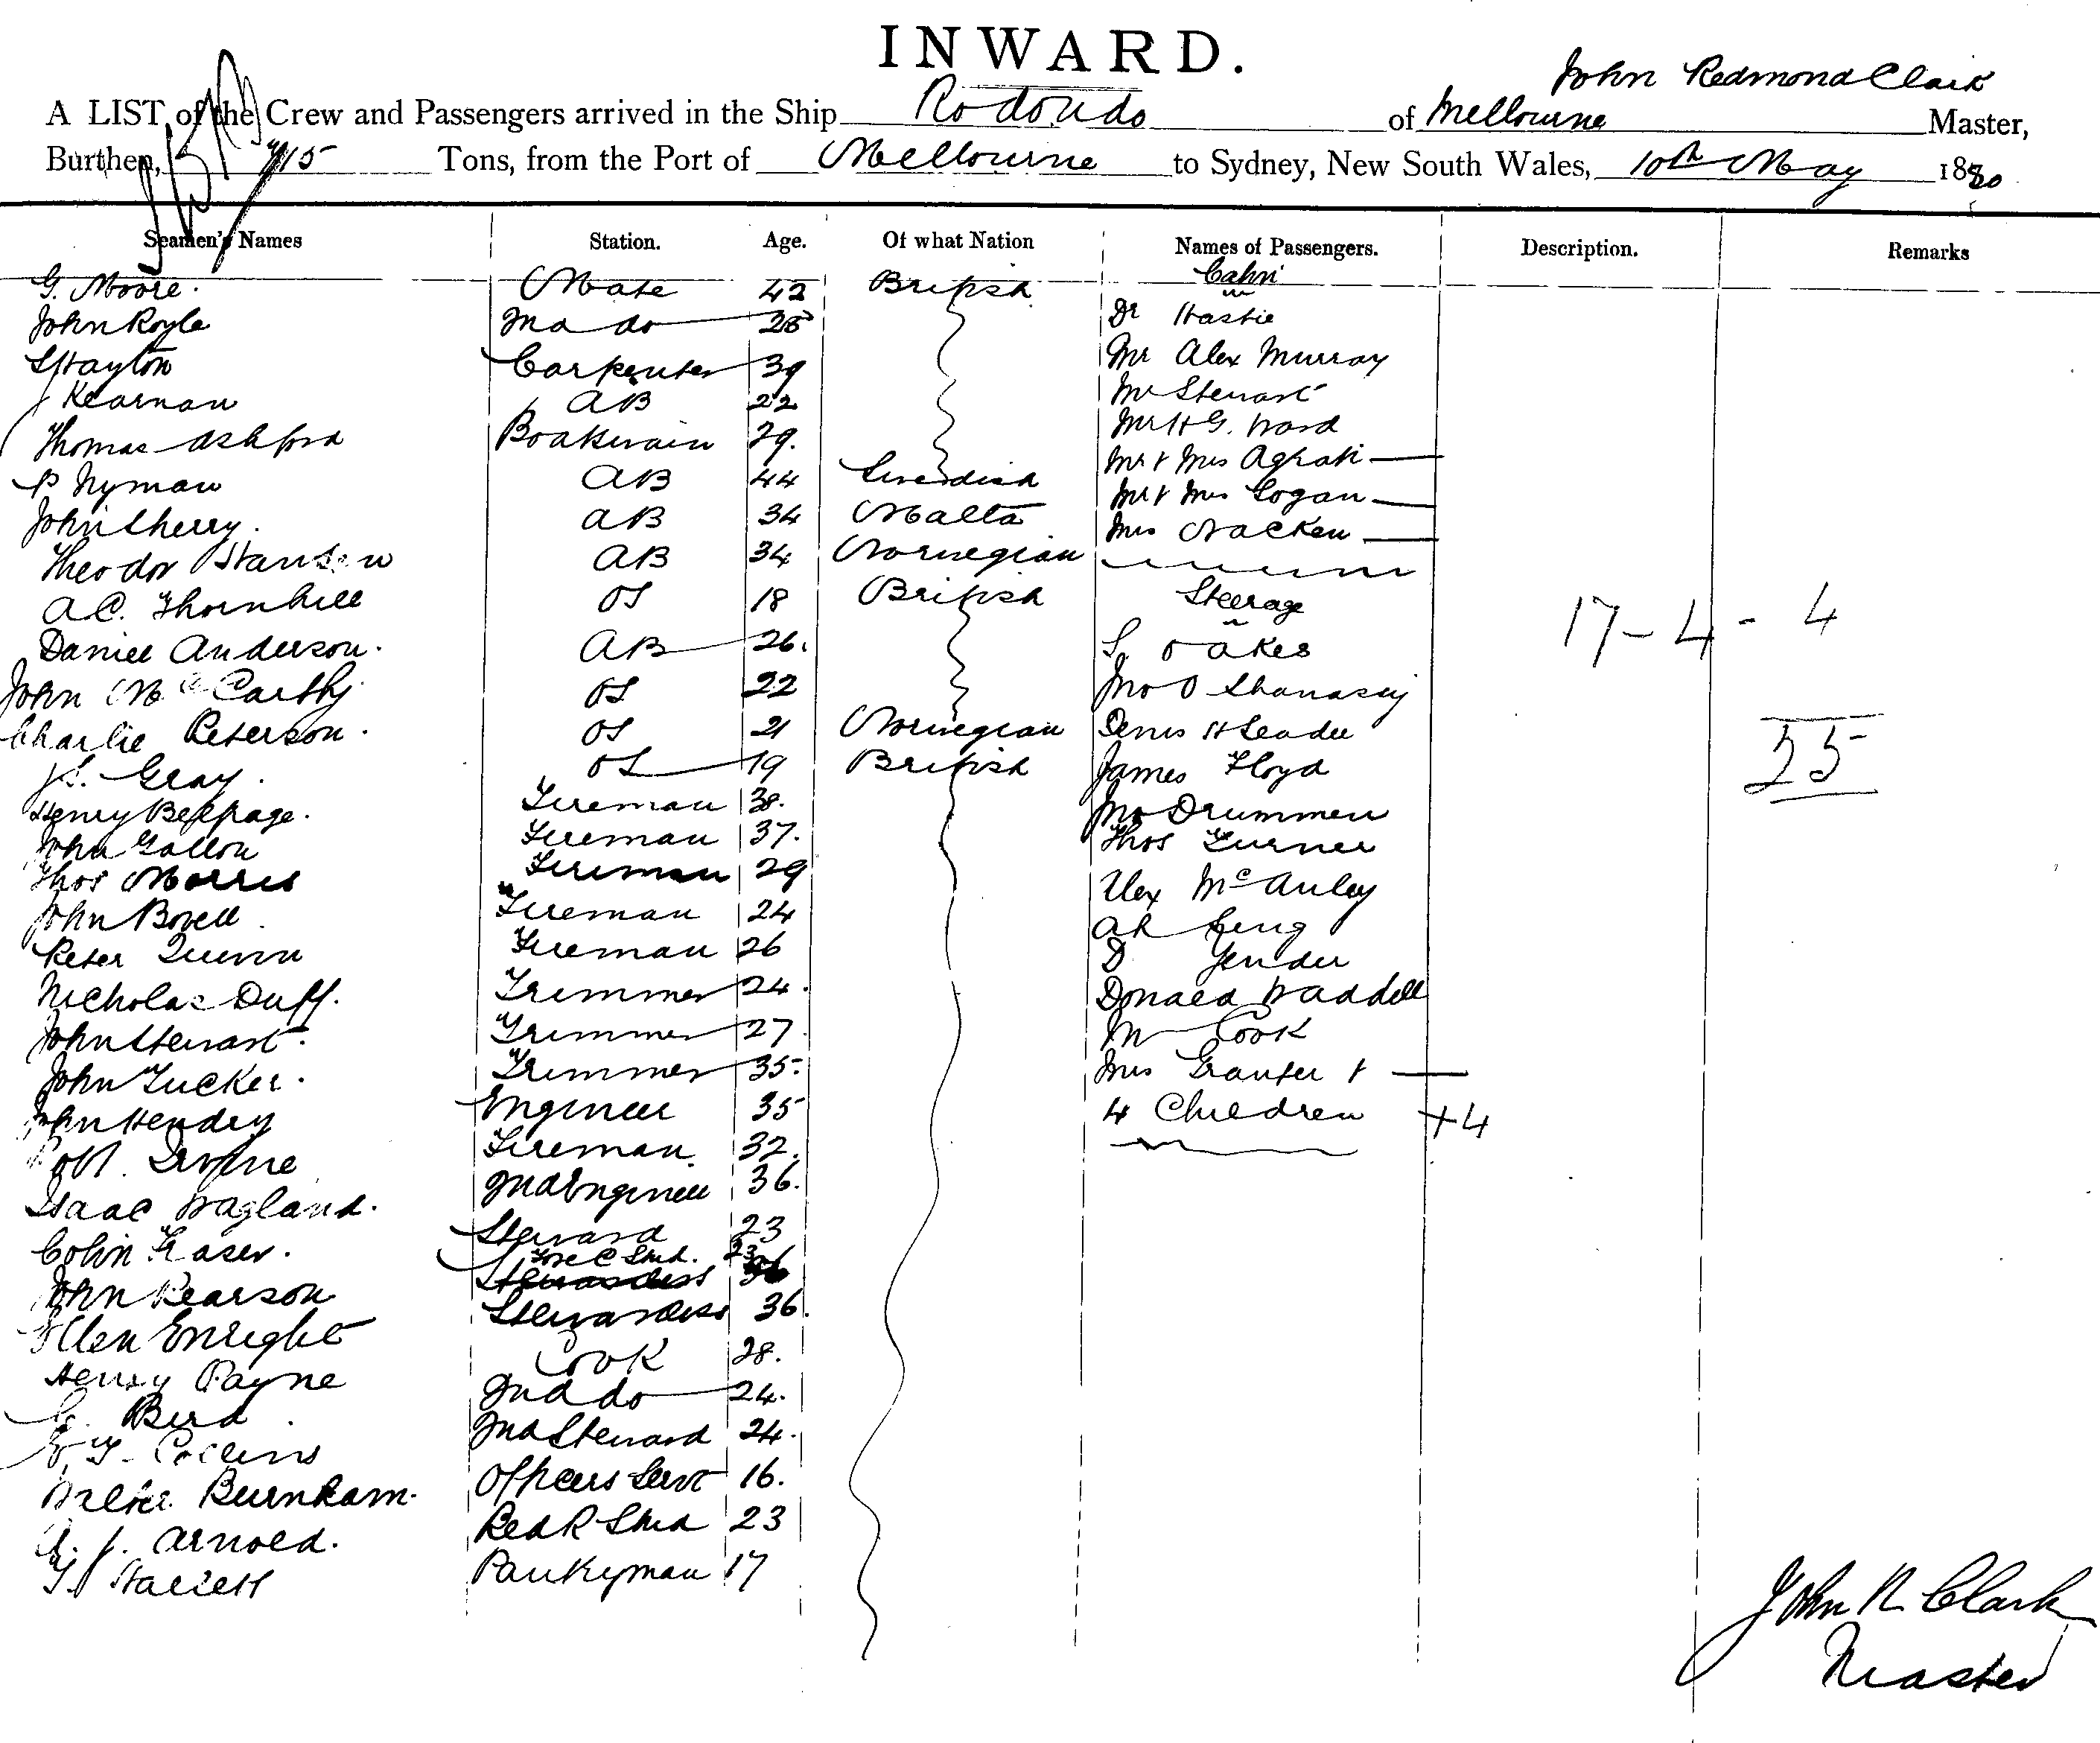 INWARD.
John Redmond Clark
A LIST of the Crew and Passengers arrived in the Ship Rodondo of Melbourne Master,
Burthen, 715 Tons, from the Port of Melbourne to Sydney, New South Wales, 10th May 1880
Seamen's Names Station. Age. Of what Nation Names of Passengers. Description. Remarks
Cabin
G. Moore. Mate 42 British
John Royle 2nd do 25 Dr Hastie
Hayton Carpenter 39 Mr Alex Murray
J Kearnan AB 22 Mr Stewart
Thomas Ashford Boatswain 29. Mr H G. Ward
P Nyman AB 44 Swedish Mr & Mrs Agrati
John Sherry. AB 34 Malta Mr & Mrs Gogan
Theodor Hansen AB 34 Norwegian Mrs Nacken
A C. Thornhill OS 18 British Steerage
17 - 4 - 4
Daniel Anderson. AB 26. S. Oakes
John McCarthy OS 22 Jno O Shanassy
Charlie Peterson. OS 21 Norwegian Denis
25
Gray. OS 19 British James Floyd
Henry Belfrage. Fireman 38. Jno Drummen
John Gallon Fireman 37. Thos Turner
Thos Morris Fireman 29 Alex McAuley
John Bovell Fireman 24 Ah
Peter Quinn Fireman 26 D
Nicholas Duff. Trimmer 24. Donald Waddell
John Stewart. Trimmer 27 M Cook
John Tucker. Trimmer 35. Mrs Granter &
John Hendry Engineer 35 4 Children +4
Robt. Irvine Fireman. 32.
Isaac Wagland. 2nd Engineer 36.
Colin Fraser. Steward 23
John Pearson Fore C Stwd. 23
Ellen Enright Stewardess 36.
Henry Payne Cook 28.
G. Bird. 2nd do 24.
T. Collins 2nd Steward 24.
Walter Burnham. Officers Servt 16.
J. Arnold. Stwd 23
T. Pantryman 17
John R Clark
Master